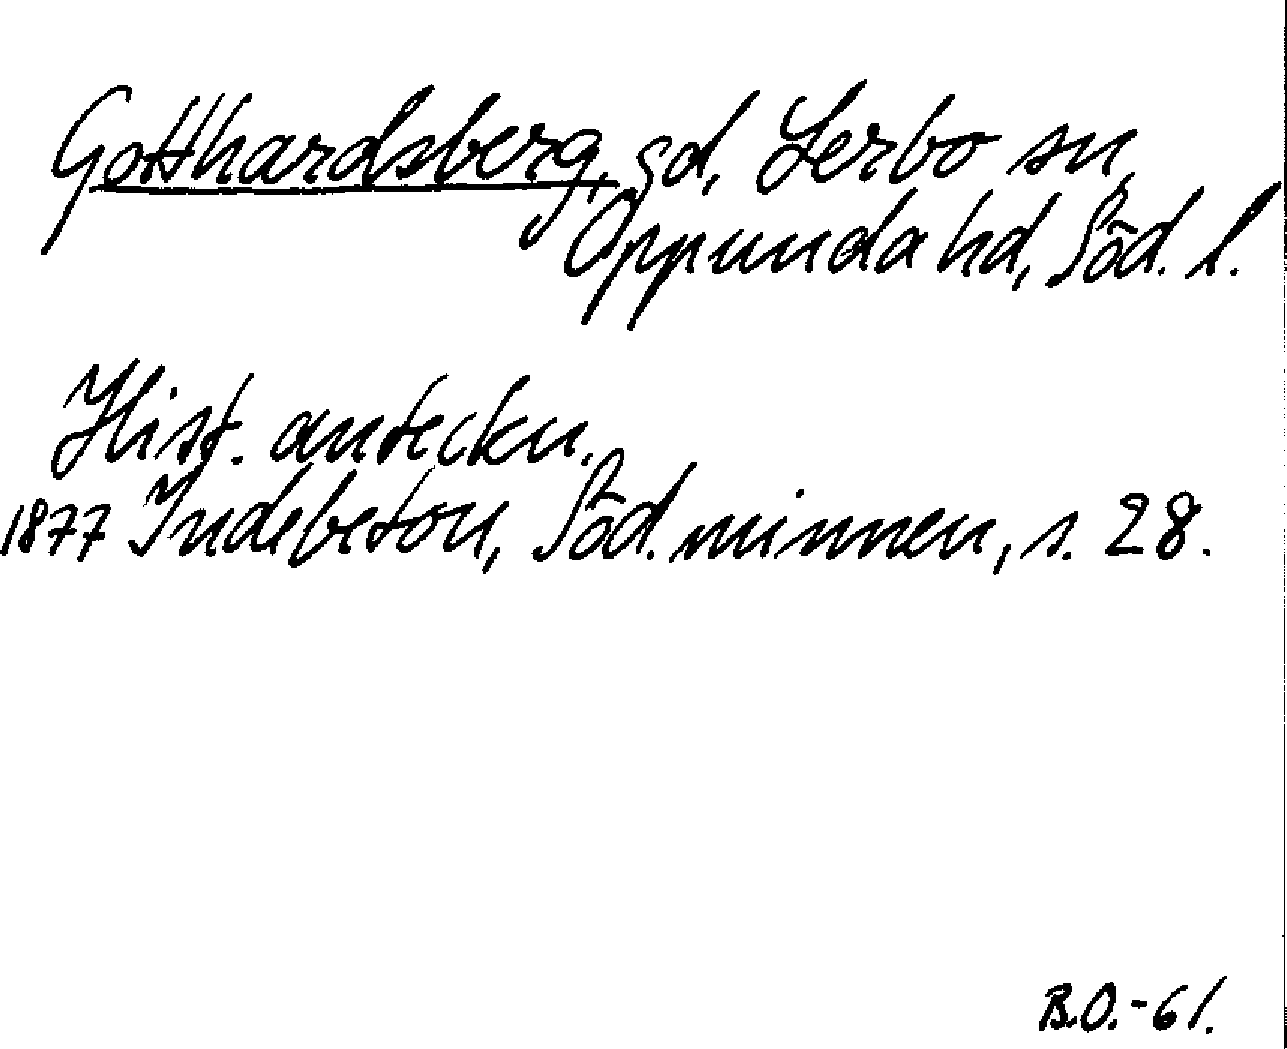 Gotthardsberg, gd, Lerbo sn,
Oppunda hd, Söd. l.
Hist. anteckn.
1877 Indebetou, Söd. minnen, s. 28.
B.O.-61.